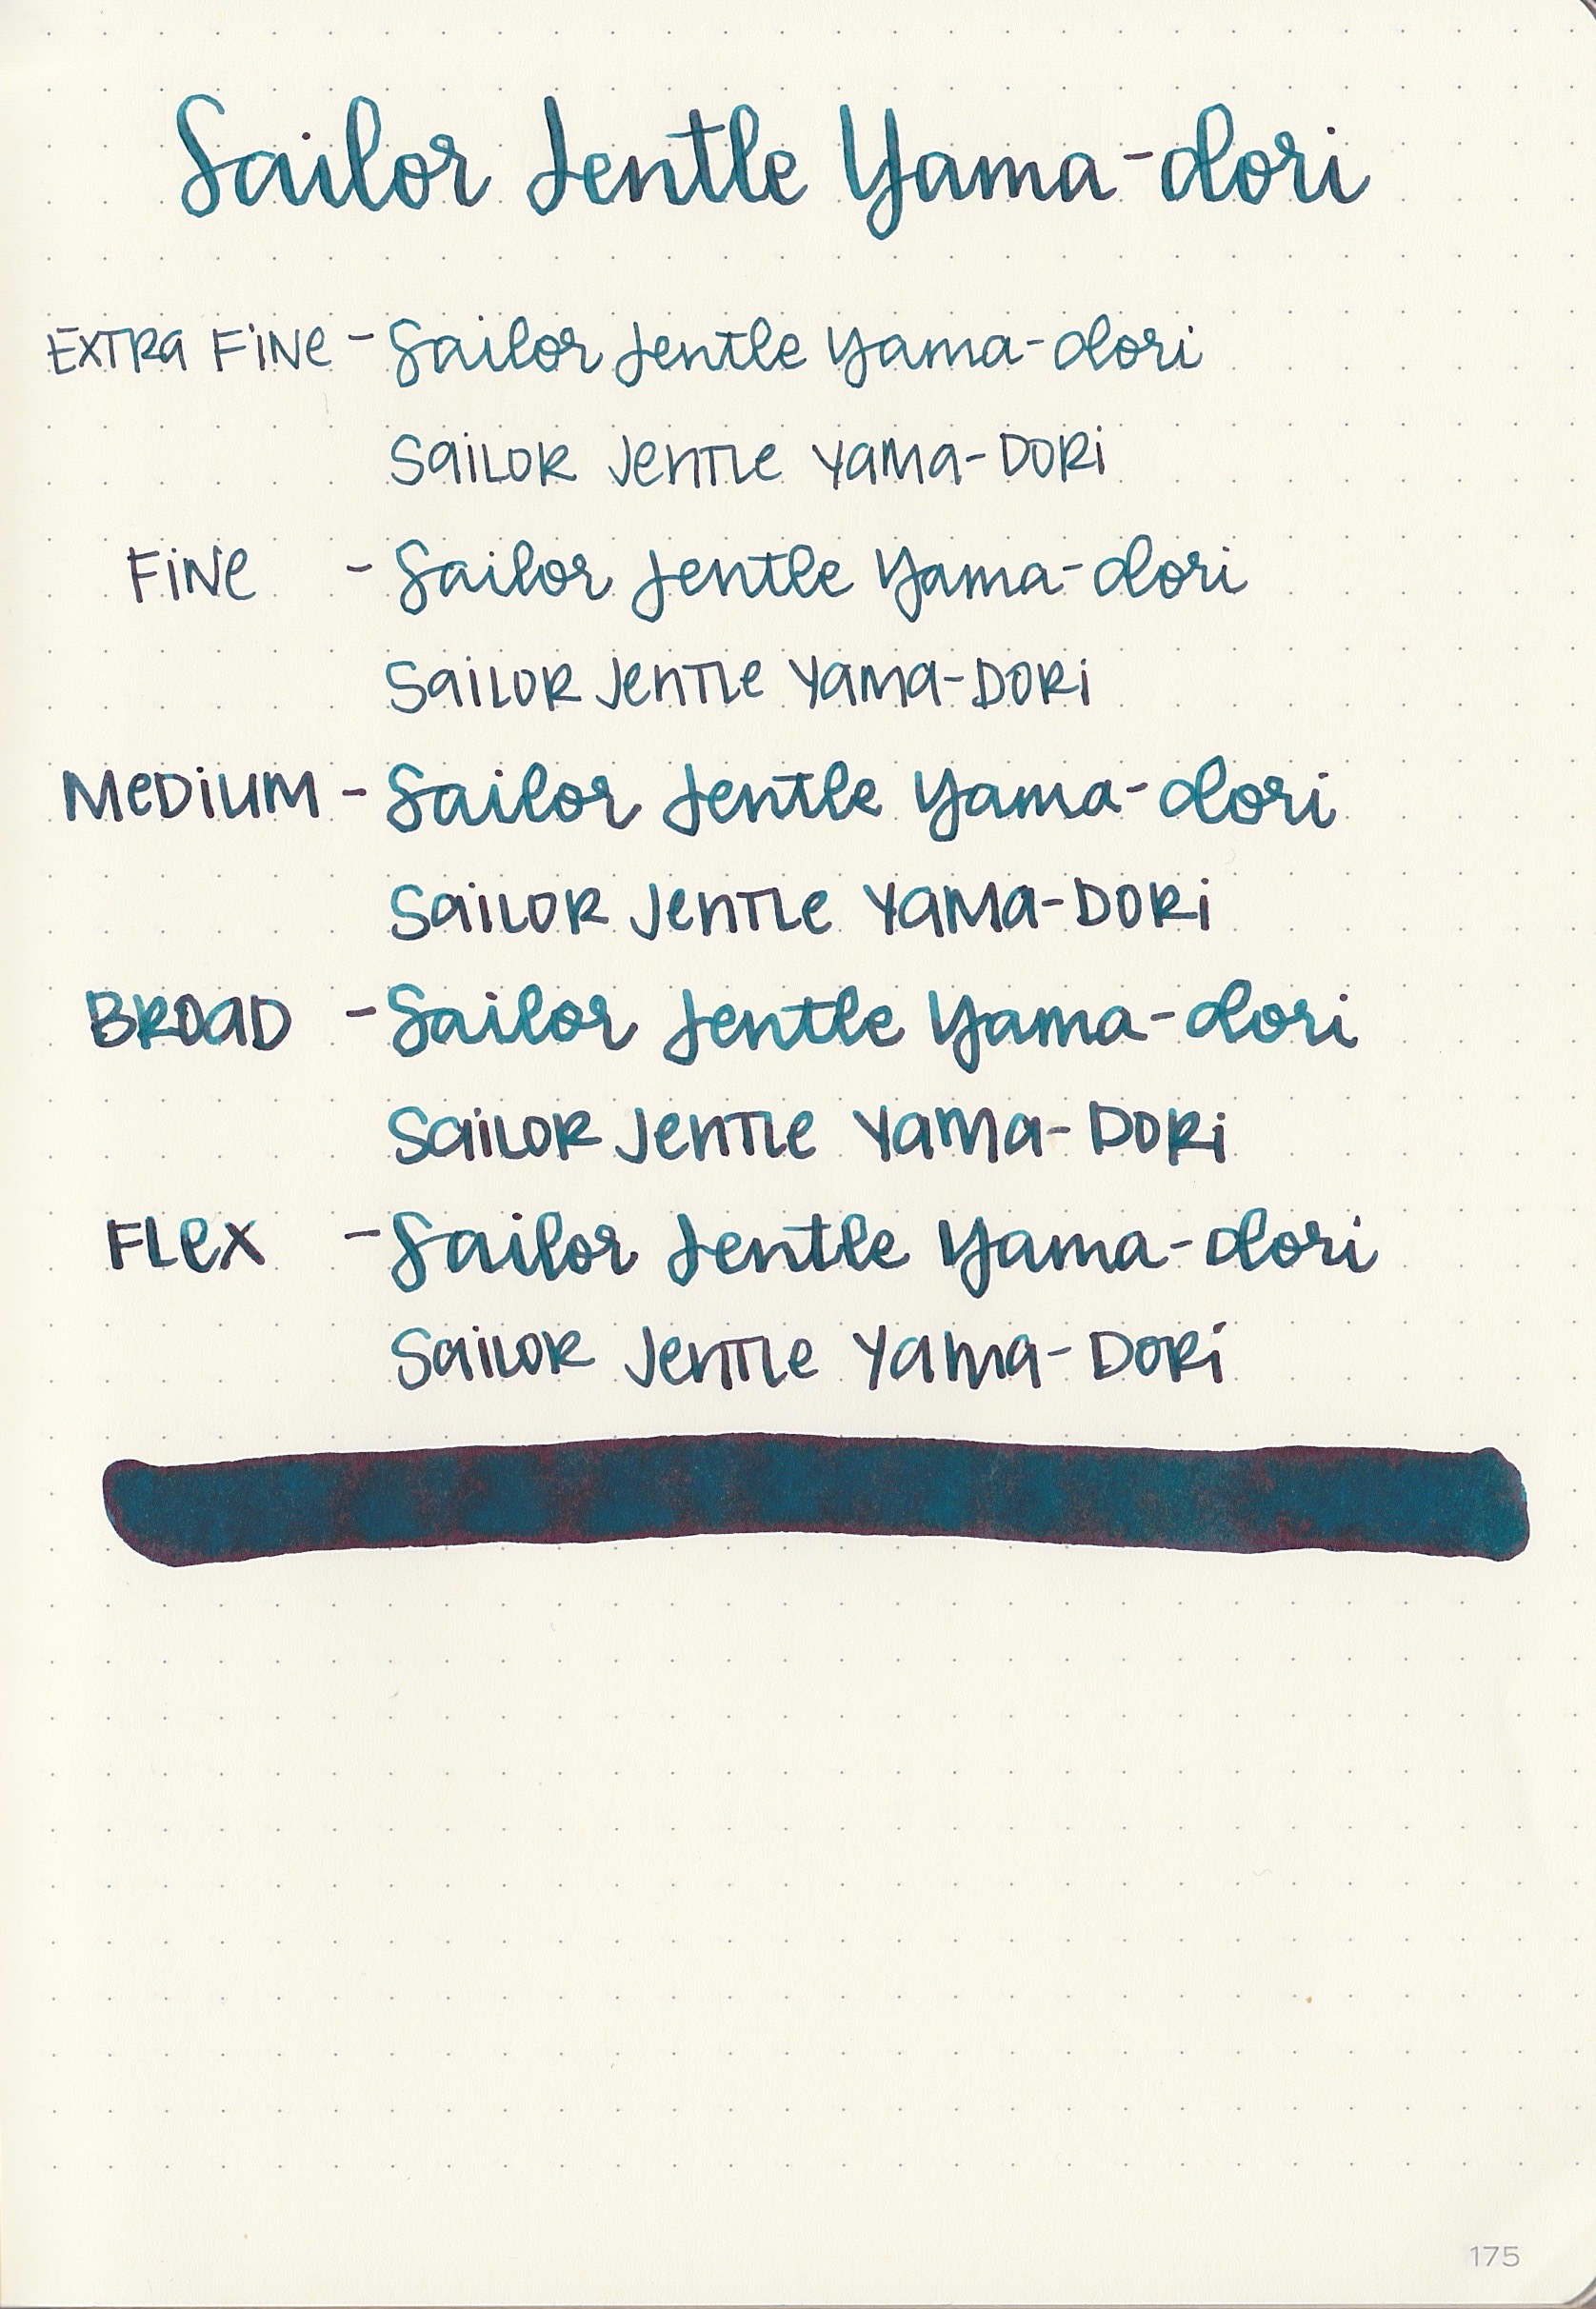 Sailor Jentle Yama-dori
EXTRA FINE - Sailor Jentle Yama-dori
SAILOR JENTLE YAMA-DORI
FINE - Sailor Jentle Yama-dori
SAILOR JENTLE YAMA-DORI
MEDIUM - Sailor Jentle Yama-dori
SAILOR JENTLE YAMA-DORI
BROAD - Sailor Jentle Yama-dori
SAILOR JENTLE YAMA-DORI
FLEX - Sailor Jentle Yama-dori
SAILOR JENTLE YAMA-DORI
175